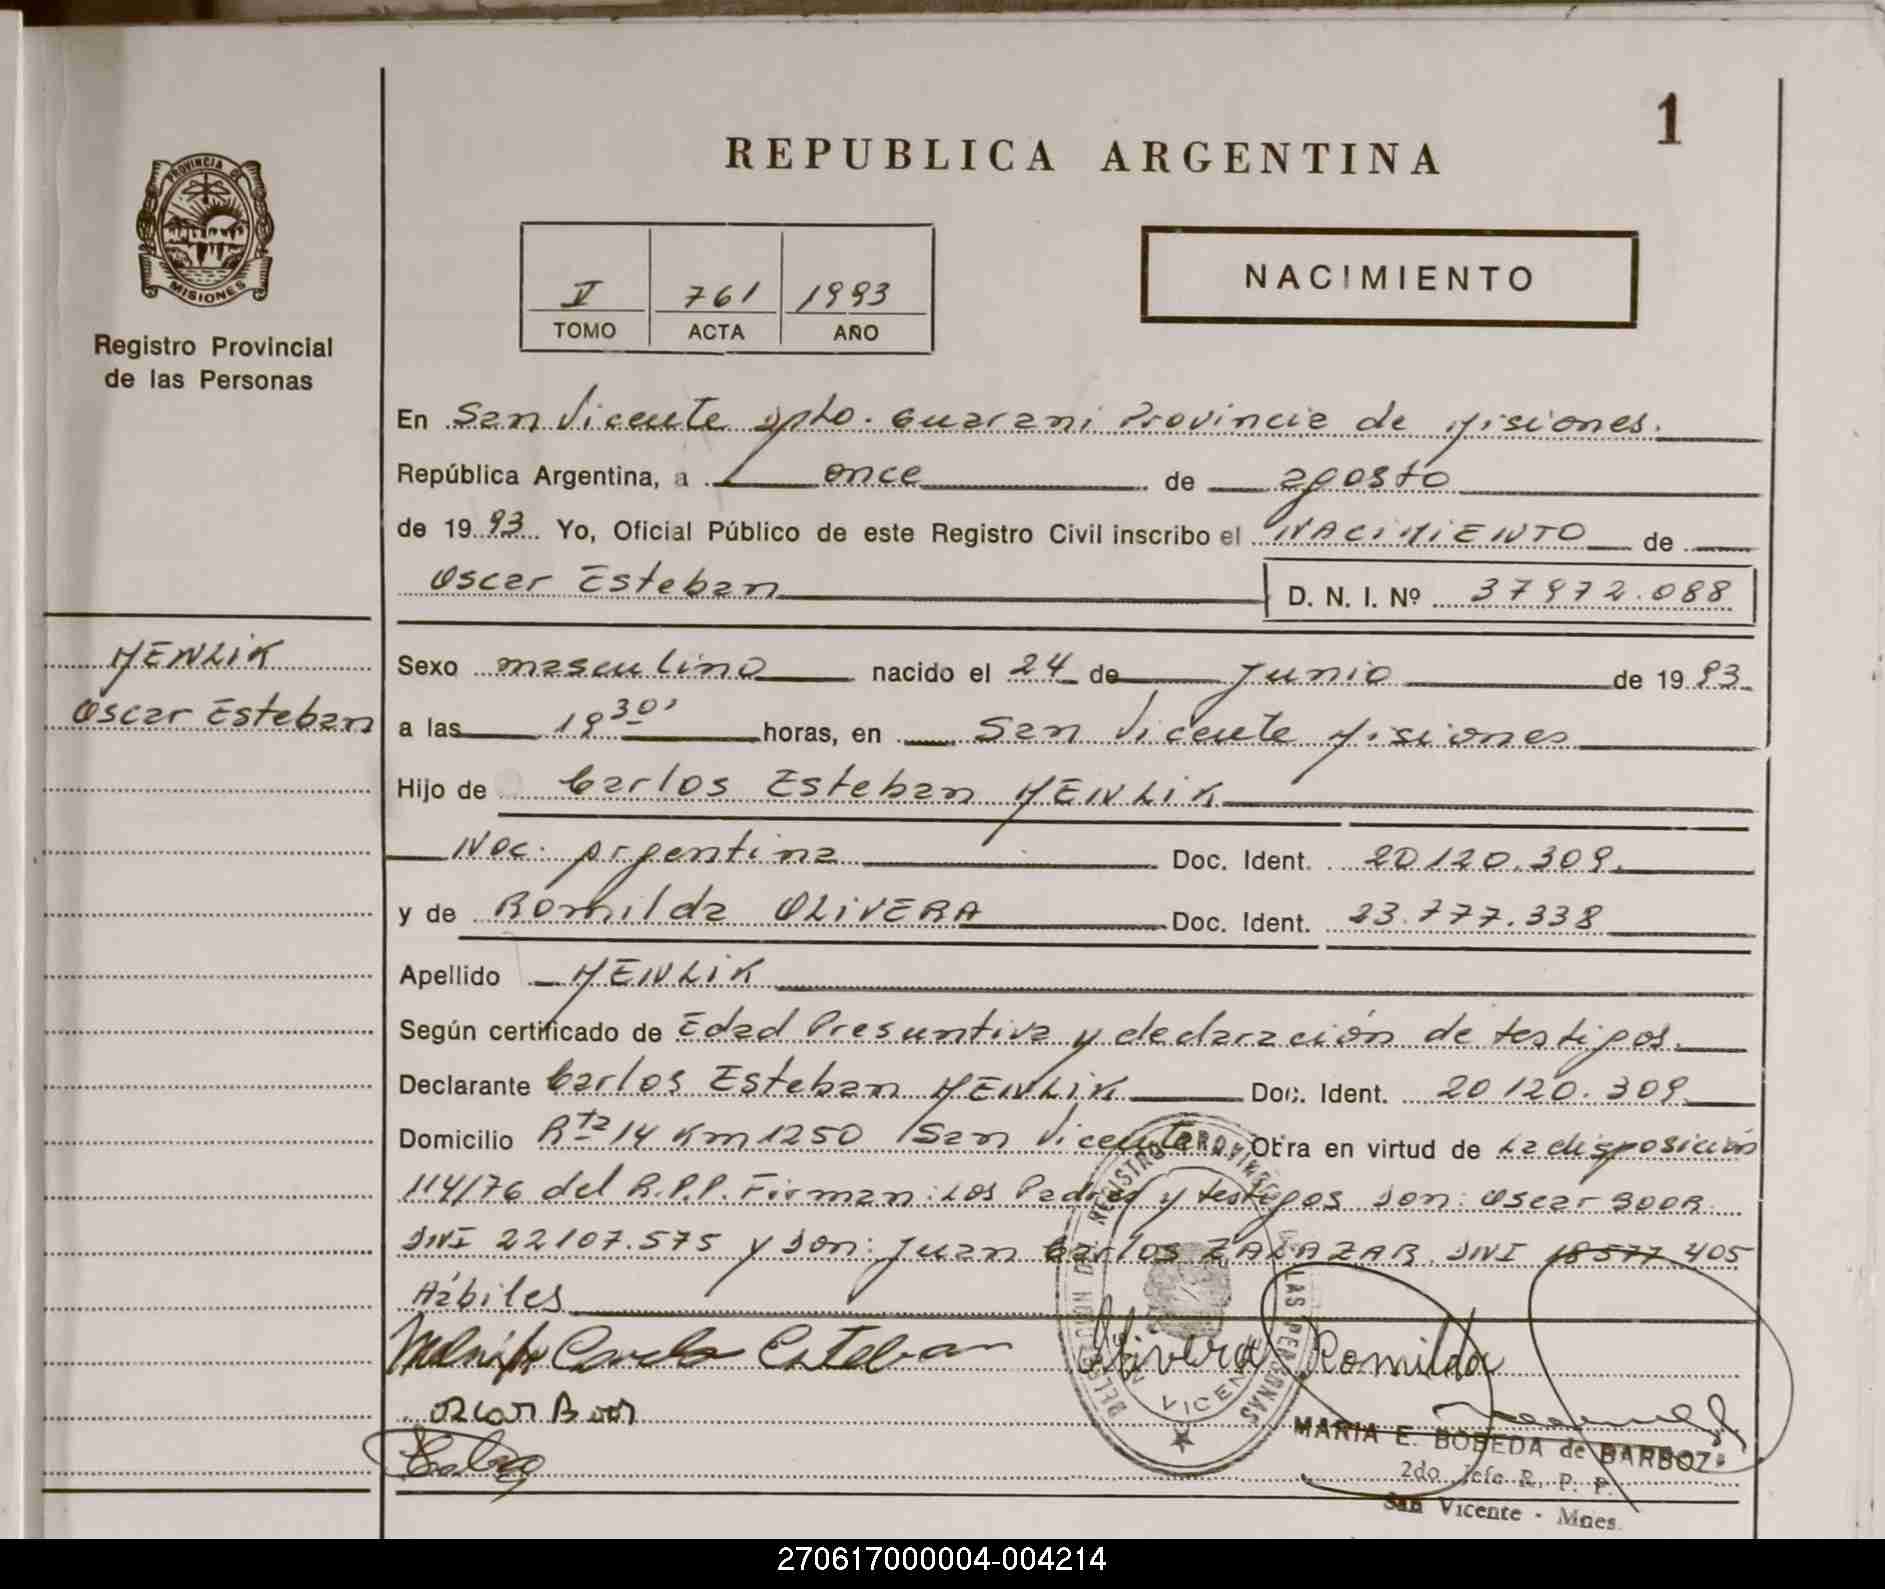 1
REPUBLICA ARGENTINA
PROVINCIA DE
MISIONES
Registro Provincial
de las Personas
V 761 1993
TOMO ACTA AÑO
NACIMIENTO
En San Vicente Dpto. Guarani Provincia de Misiones.
República Argentina, a once de agosto
de 1993 Yo, Oficial Público de este Registro Civil inscribo el NACIMIENTO de
Oscar Esteban D. N. I. Nº 37972.088
HENLIK
Oscar Esteban
Sexo masculino nacido el 24 de Junio de 1993
a las 19 30' horas, en San Vicente Misiones
Hijo de Carlos Esteban HENLIK
Nac. Argentina Doc. Ident. 20120.309.
y de Romilda OLIVERA Doc. Ident. 23.777.338
Apellido HENLIK
Según certificado de Edad Presuntiva y declaración de testigos.
Declarante Carlos Esteban HENLIK Doc. Ident. 20120.309.
Domicilio Rta 14 Km 1250 San Vicente Obra en virtud de La disposición
114/76 del R.P.P. Firman: Los Padres y testigos son: Oscar BOOR
DNI 22107.575 y Don: Juan Carlos ZALAZAR. DNI 18577 405
Hábiles
Carlos Esteban Olivera Romilda
oscar Boor
DELEGACION DEL REGISTRO PROVINCIAL DE LAS PERSONAS
VICENTE
MARIA E. BOBEDA de BARBOZA
2do. Jefe R. P. P.
San Vicente - Mnes.
270617000004-004214